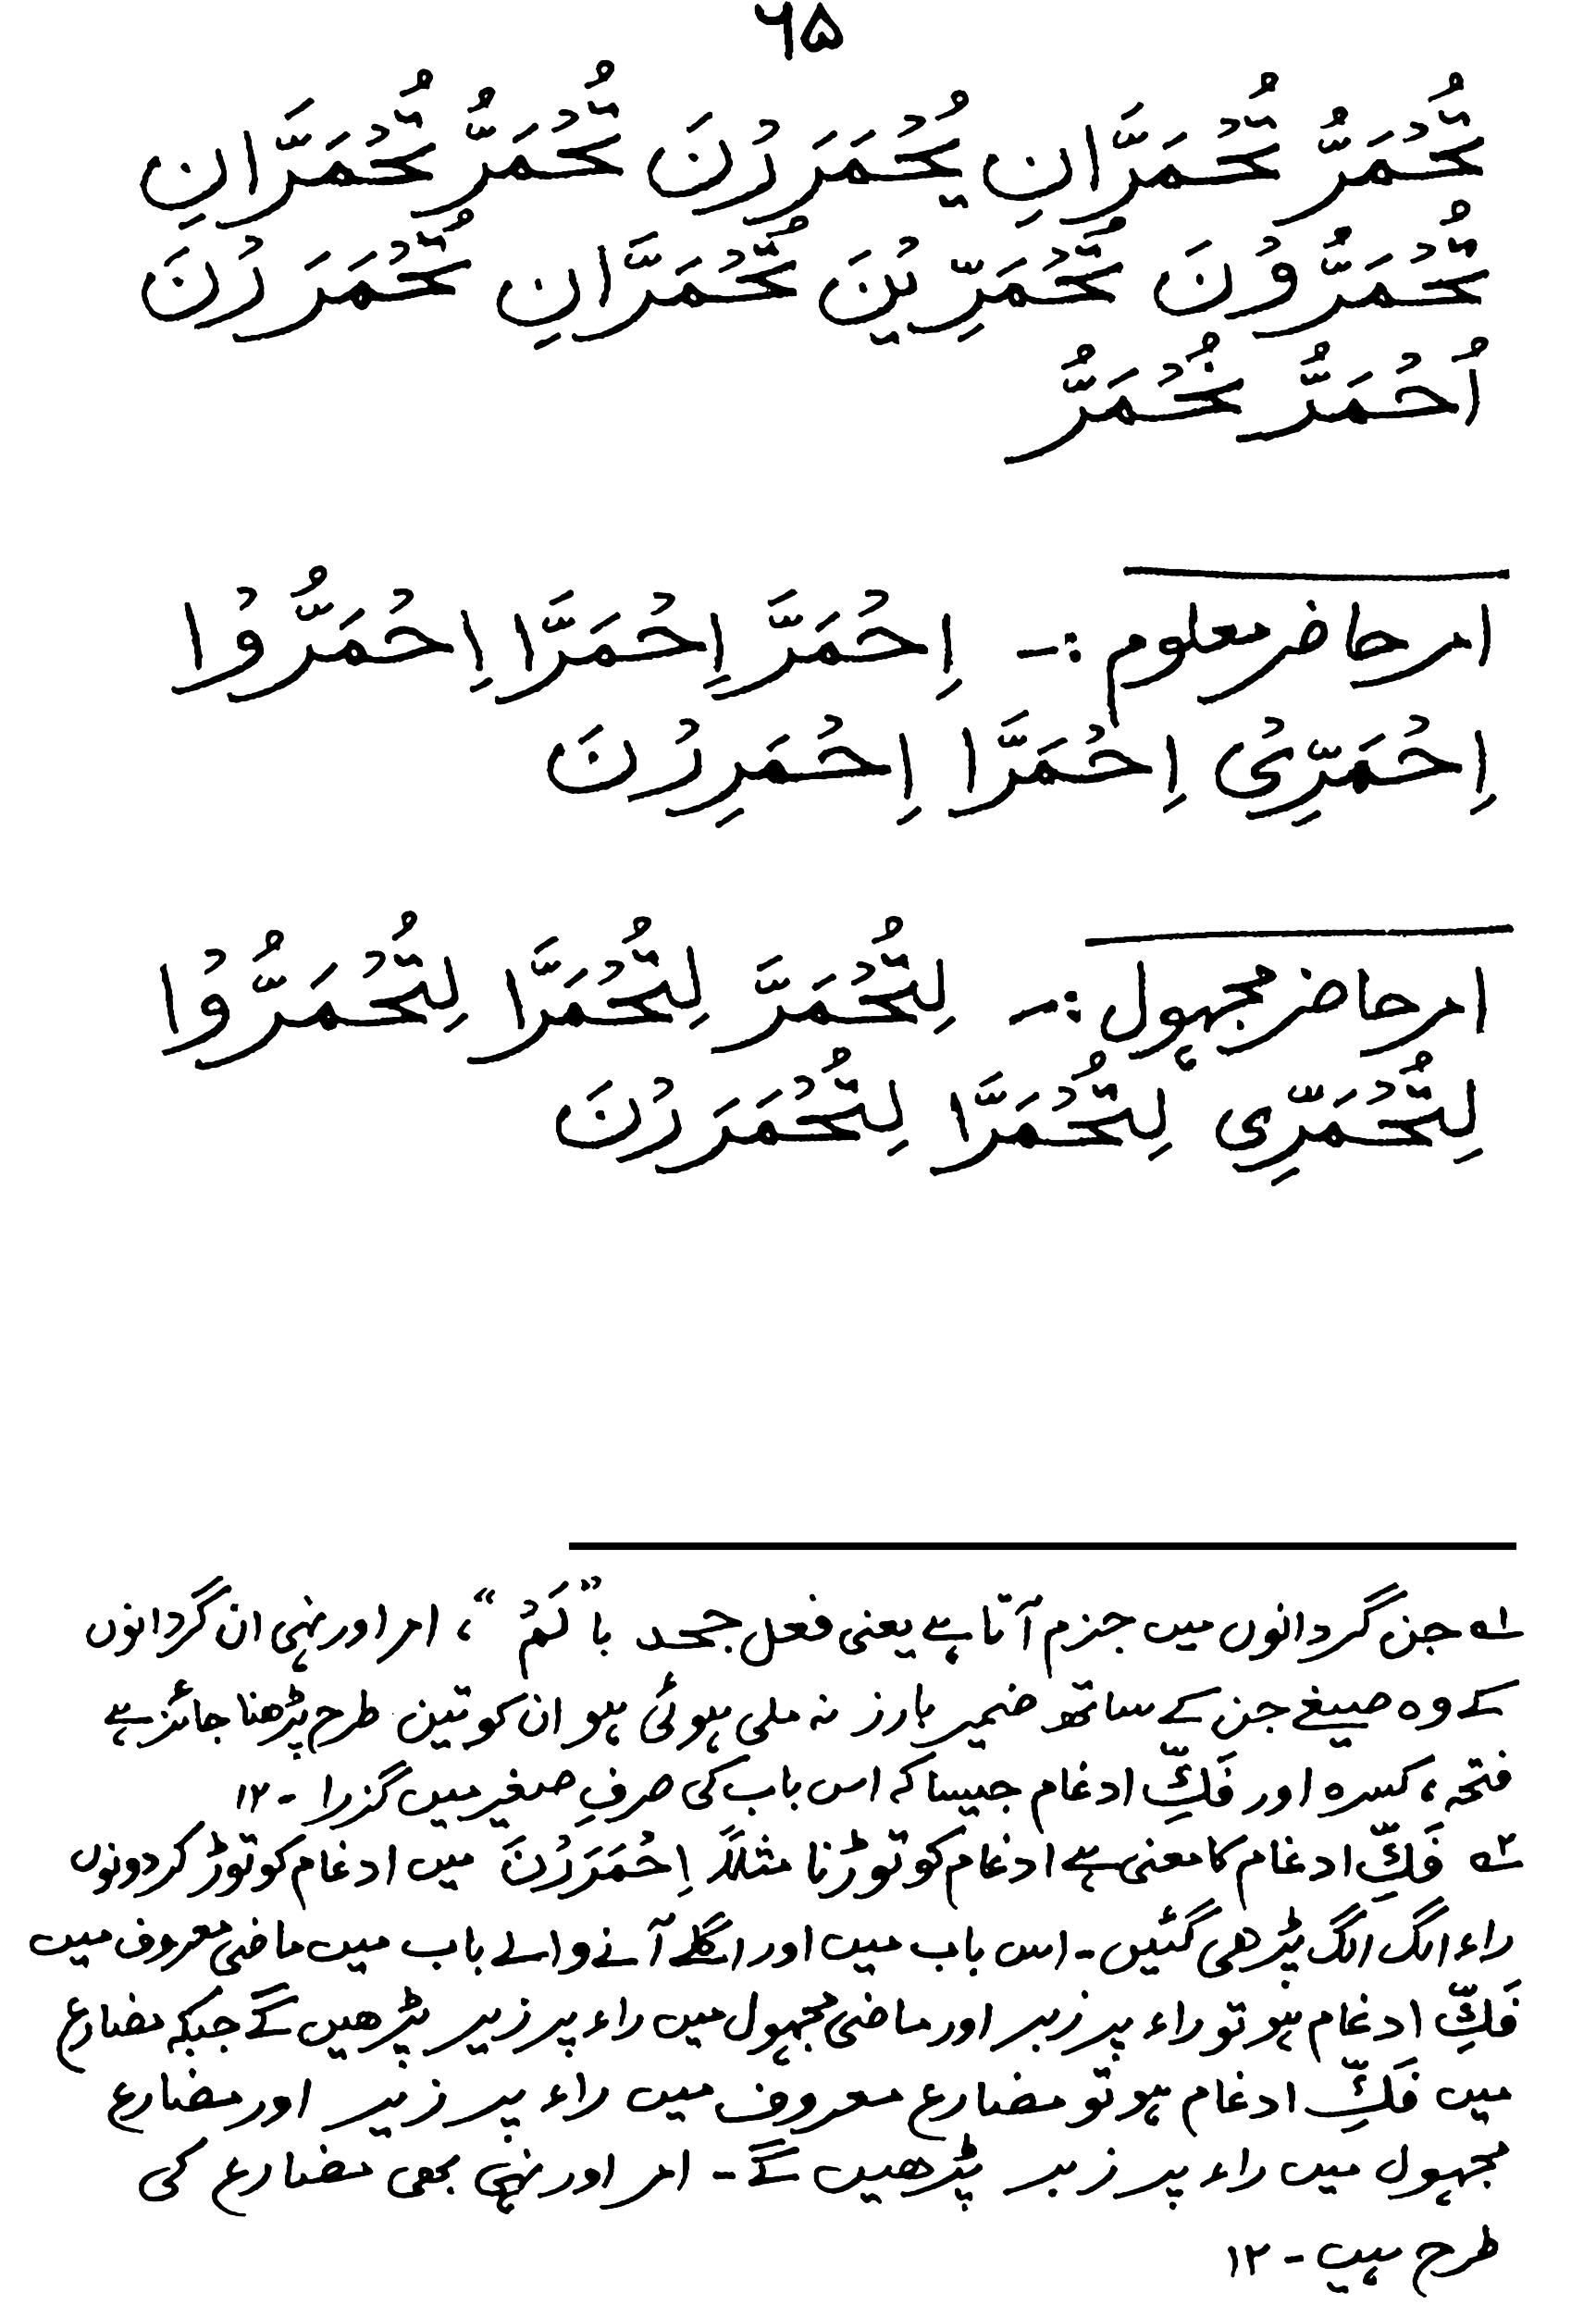 ۶۵
تُحْمَرُّ تُحْمَرَّانِ يُحْمَرَرْنَ تُحْمَرُّ تُحْمَرَّانِ
تُحْمَرُّوْنَ تُحْمَرِّيْنَ تُحْمَرَّانِ تُحْمَرَرْنَ
اُحْمَرُّ نُحْمَرُّ
امر حاضر معلوم :- اِحْمَرَّ اِحْمَرَّا اِحْمَرُّوْا
اِحْمَرِّیْ اِحْمَرَّا اِحْمَرِرْنَ
امر حاضر مجہول :- لِتُحْمَرَّ لِتُحْمَرَّا لِتُحْمَرُّوْا
لِتُحْمَرِّی لِتُحْمَرَّا لِتُحْمَرَرْنَ
؎۱ جن گردانوں میں جزم آتا ہے یعنی فعل جحد با ”لَمْ“، امر اور نہی ان گردانوں
کے وہ صیغے جن کے ساتھ ضمیر بارز نہ ملی ہوئی ہو ان کو تین طرح پڑھنا جائز ہے
فتحہ، کسرہ اور فَکِّ ادغام جیسا کہ اس باب کی صرفِ صغیر میں گزرا - ۱۲
؎۲ فَکِّ ادغام کا معنی ہے ادغام کو توڑنا مثلاً اِحْمَرَرْنَ میں ادغام کو توڑ کر دونوں
راء الگ الگ پڑھی گئیں - اس باب میں اور اگلے آنے والے باب میں ماضی معروف میں
فَکِّ ادغام ہو تو راء پر زبر اور ماضی مجہول میں راء پر زیر پڑھیں گے جبکہ مضارع
میں فَکِّ ادغام ہو تو مضارع معروف میں راء پر زیر اور مضارع
مجہول میں راء پر زبر پڑھیں گے - امر اور نہی بھی مضارع کی
طرح ہیں - ۱۲